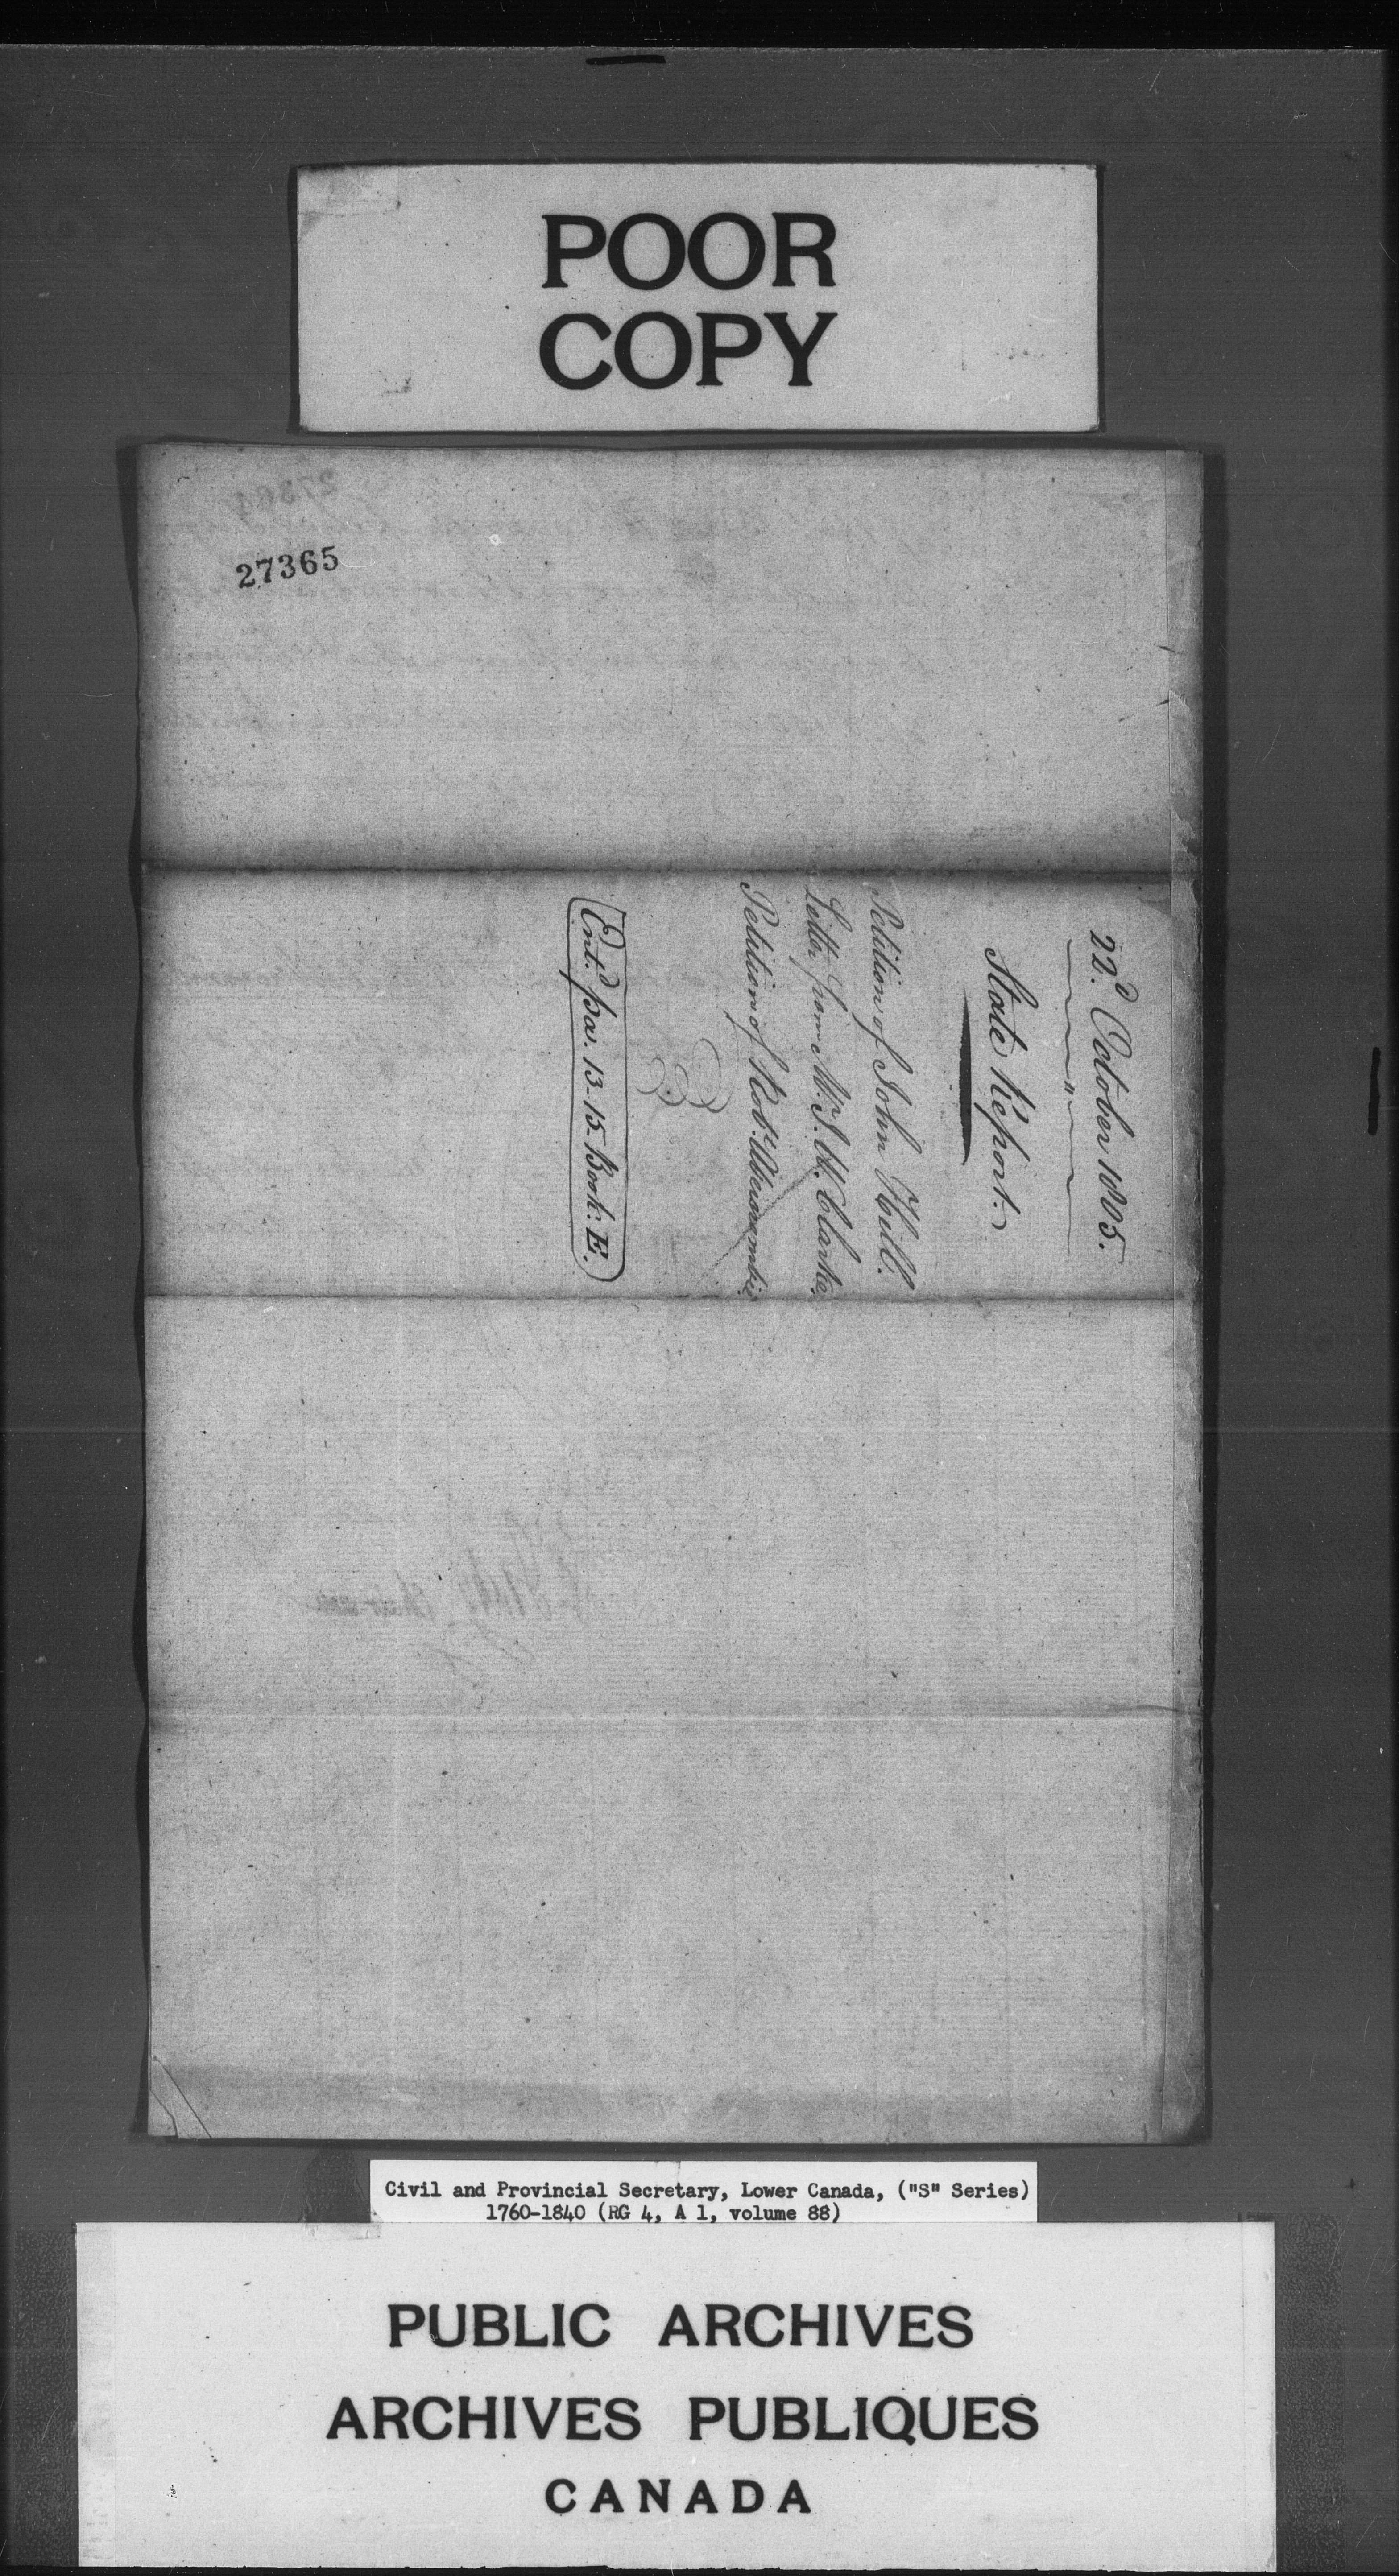 POOR
COPY
27365
22.d October 1805.
State Report.
Petition of John Hill.
Letter from Mr. J. H. Clarke.
Petition of Robt. Abercrombie
Ent.d pa. 13-15. Book: E.
Civil and Provincial Secretary, Lower Canada, ("S" Series)
1760-1840 (RG 4, A 1, volume 88)
PUBLIC ARCHIVES
ARCHIVES PUBLIQUES
CANADA